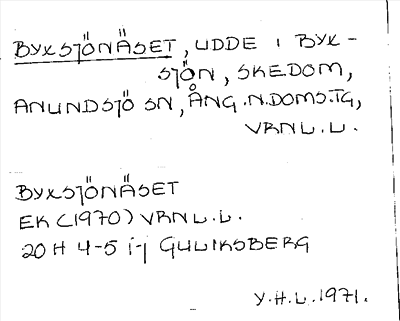 BYXSJÖNÄSET, UDDE I BYX-
SJÖN, SKEDOM,
ANUNDSJÖ SN, ÅNG.N.DOMS.TG,
VRNL.L.
BYXSJÖNÄSET
EK (1970) VRNL.L.
20 H 4-5 i-j GULIKSBERG
Y.H.L. 1971.